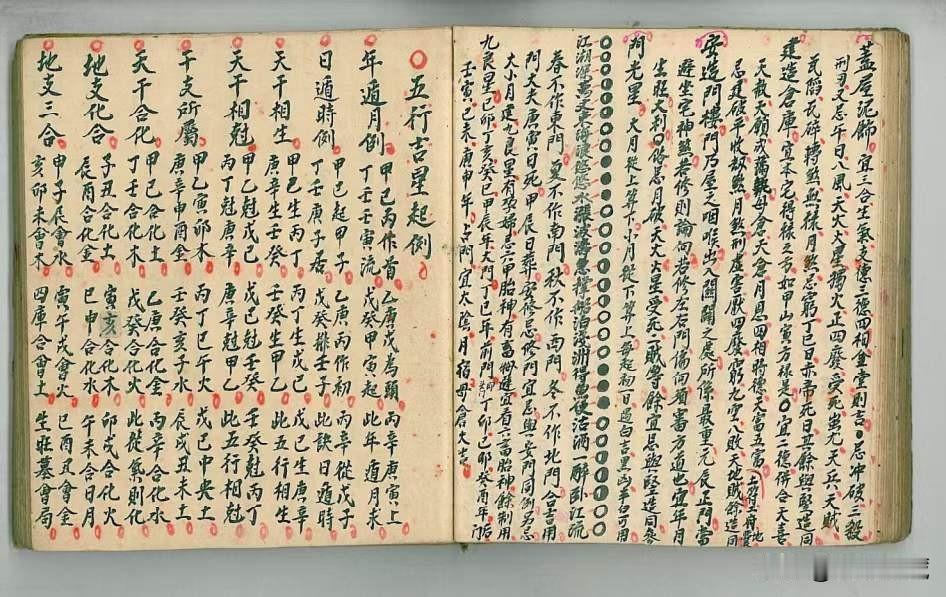 蓋屋泥飾 宜三合生氣支德三德四相金堂則吉〇忌冲破三殺
刑刃又忌午日八風天火火星獨火正四廢受死蚩尤天兵天賊
瓦陷瓦碎轉煞血祿月煞忌窮丁巳日赤帝死日其餘與竪造同
建造倉庫 宜本宅得祿之方如甲山寅方祿是〇宜二德併合天喜
天赦天願成滿母倉天倉月恩四相時德天富五富
忌建破平收劫煞月煞刑虛空厭四廢窮九空八敗天地賊餘造同
安造門樓門乃屋之咽喉出入關闔之處所係最重元辰正門當
避坐宅神煞若修則論向若修左右門偏向看審方道也宜年月
生旺大利〇修忌月破天火火星受死天賊餘宜忌與竪造同參
門光星 大月從上算下小月從下算上每起初一日遇白吉黑凶半白可用
〇〇〇〇〇●●●〇〇〇〇〇〇
江湖深萬丈文海浪悠悠水碌波濤急樓船泊淺洲得魚便沽酒一醉卧江流
春不作東門 夏不作南門 秋不作西門 冬不作北門 合吉吉用
門大夫庚寅日死 甲辰日葬 安修忌 修門宜忌與安門同例另忌
大小月建九良星有孕婦忌六甲胎神有畜欄建宜看六畜胎神餘制用
九良星己卯丁亥癸巳甲辰年大門丁巳年前門丁卯己卯癸酉年后門
壬寅己未庚申年占門 宜太陰月宿母倉大吉
〇五行吉星起例
年遁月例 甲己丙作首 乙庚戊為頭 丙辛庚寅上
丁壬壬寅流 戊癸甲寅起 此年遁月求
日遁時例 甲己起甲子 乙庚丙作初 丙辛從戊子
丁壬庚子居 戊癸推壬子 此訣日遁時
天干相生 甲乙生丙丁 丙丁生戊己 戊己生庚辛
庚辛生壬癸 壬癸生甲乙 此五行相生
天干相尅 甲乙尅戊己 戊己尅壬癸 壬癸尅丙丁
丙丁尅庚辛 庚辛尅甲乙 此五行相尅
干支所屬 甲乙寅卯木 丙丁巳午火 戊己中央土
庚辛申酉金 壬癸亥子水 辰戌丑未土
天干合化 甲己合化土 乙庚合化金 丙辛合化水
丁壬合化木 戊癸合化火 此從氣則化
地支化合 子丑合化土 寅亥合化木 卯戌合化火
辰酉合化金 巳申合化水 午未合日月
地支三合 申子辰會水 寅午戌會火 巳酉丑會金
亥卯未會木 四庫合會土 生旺墓會局